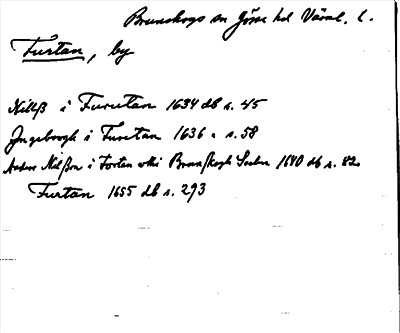 Brunskogs sn Jösse hd Värml. l.
Furtan, by
Nillß i Furutan 1634 db s. 45
Ingeborgh i Furetan 1636 " s. 58
Anders Nilßon i Förtan Brunskogh Sochn 1640 db s. 82.
Furtan 1655 db s. 293